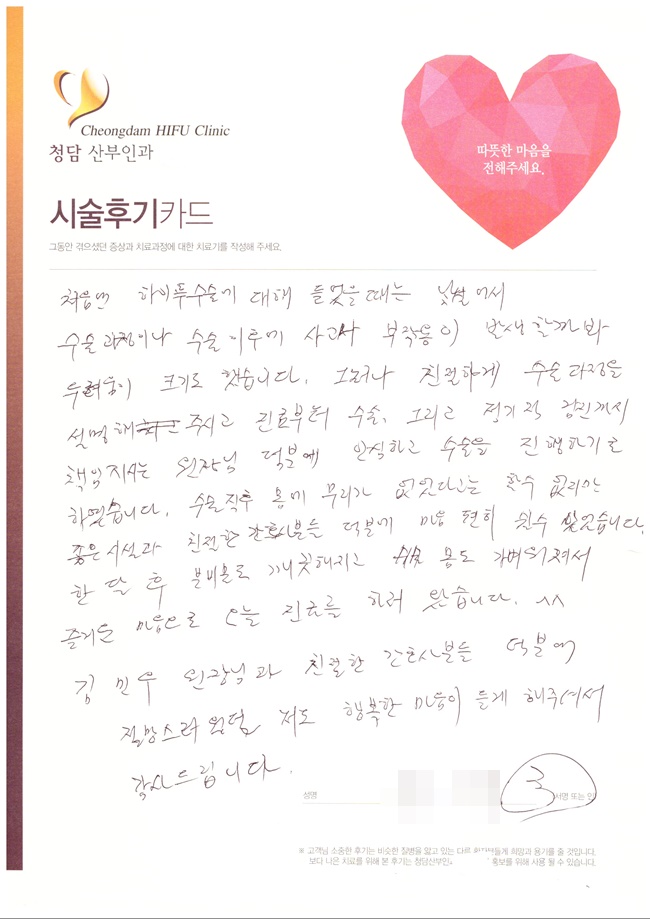 Cheongdam HIFU Clinic
청담 산부인과
따뜻한 마음을
전해주세요.
시술후기카드
그동안 겪으셨던 증상과 치료과정에 대한 치료기를 작성해 주세요.
처음엔 하이푸수술에 대해 들었을때는 낯설어서
수술과정이나 수술이후에 사고나 부작용이 발생할까봐
두려움이 크기도 했습니다. 그러나 친절하게 수술과정을
설명해 주시고 진료부터 수술, 그리고 정기적 검진까지
책임지시는 원장님 덕분에 안심하고 수술을 진행하기로
하였습니다. 수술직후 몸에 무리가 없었다고는 할수 없지만
좋은시설과 친절한 간호사분들 덕분에 마음 편히 쉴수 있었습니다.
한 달 후 분비물도 깨끗해지고 몸도 가벼워져서
즐거운 마음으로 오늘 진료를 하러 왔습니다. ^^
김민우 원장님과 친절한 간호사분들 덕분에
절망스러웠던 저도 행복한 마음이 들게 해주셔서
감사드립니다.
성명 서명 또는 인
※ 고객님 소중한 후기는 비슷한 질병을 앓고 있는 다른 환자분들게 희망과 용기를 줄 것입니다.
보다 나은 치료를 위해 본 후기는 청담산부인 홍보를 위해 사용 될 수 있습니다.